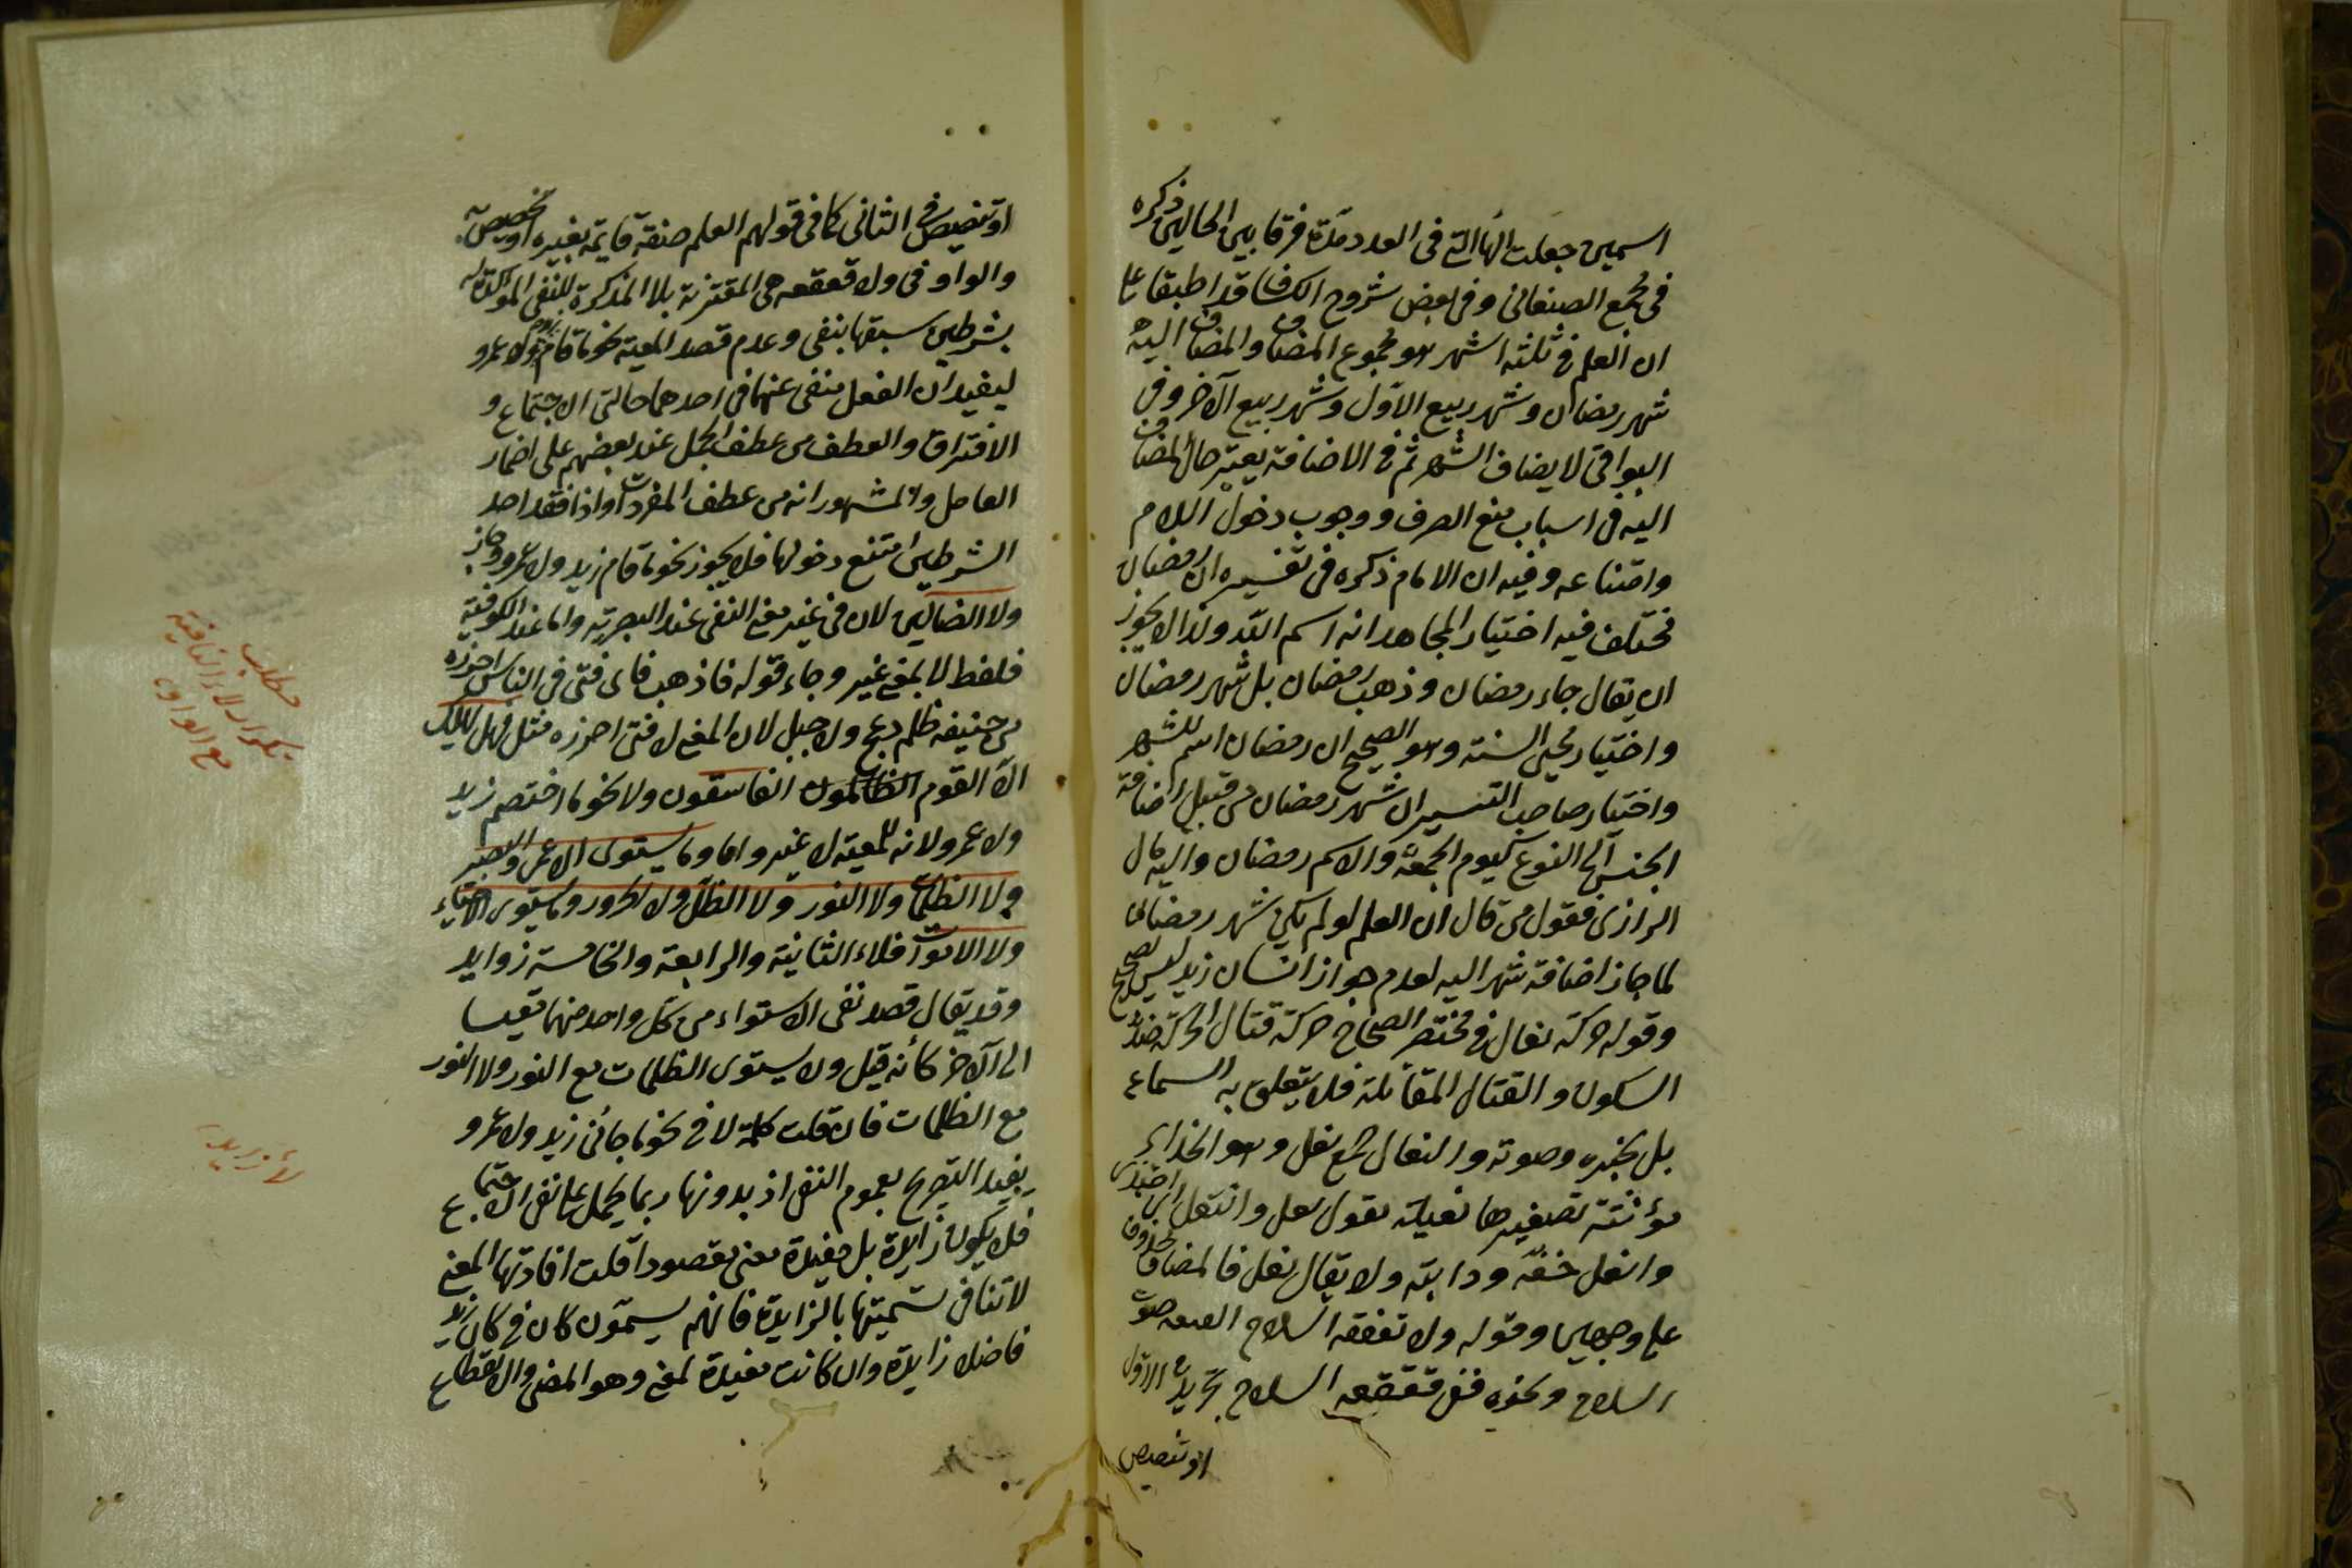 اسمين جعلت الهاالتى فى العدد مدّة فرقا بين الحالين ذكره
فى مجمع الصنعانى وفى بعض شروح الكشاف قد اطبقا على
ان العلم فى ثلثه اشهر هو مجموع المضاف والمضاف اليه
شهر رمضان وشهر ربيع الاوّل وشهر ربيع الآخر وفى
البواقى لا يضاف الشهر ثم فى الاضافة يعتبر حال المضاف
اليه فى اسباب منع الصرف ووجوب دخول اللام
وامتناعه وفيه ان الامام ذكره فى تفسيره ان رمضان
مختلف فيه اختيار المجاهد انه اسم الله ولذا لا يجوز
ان يقال جاء رمضان وذهب رمضان بل شهر رمضان
واختيار محيى السنة وهو الصحيح ان رمضان اسم للشهر
واختيار صاحب التيسير ان شهر رمضان من قبيل اضافة
الجنس الى النوع كيوم الجمعة والاسم رمضان واليه مال
الرازى فقول من قال ان العلم لو لم يكن شهر رمضان
لما جاز اضافة شهر اليه لعدم جواز انسان زيد ليس بصحيح
وقوله حركة نعال فى مختصر الصحاح حركة قتال الحركة ضد
السكون والقتال المقاتلة فلا يتعلق به السماع
بل بخبره وصوته والنعال جمع نعل وهو الحذاء
مؤنثة تصغيرها نعيلة تقول نعل وانتعل اى احتذى
وانعل خفّه ودابته ولا يقال نعل فالمضاف محذوف
على وجهين وقوله ولا تقعقعه السلاح القعقعه صوت
السلاح ونحوه ففى قعقعه السلاح تجريد فى الاوّل
او تنصيص
او تنصيص فى الثانى كما فى قولهم العلم صفة قايمة بغيره او تخصيص
والواو فى ولا قعقعه هى المقترنة بلا المذكرة للنفى المؤكدة له
بشرطين سبقها بنفى وعدم قصد المعية نحو ما قام زيد ولا عمرو
ليفيد ان الفعل منفى عنهما فى احدهما حالتى الاجتماع و
الافتراق والعطف من عطف الجمل عند بعضهم على اضمار
العامل والمشهور انه من عطف المفردات واذا فقد احد
الشرطين امتنع دخولها فلا يجوز نحو ما قام زيد ولا عمرو وجاز
ولا الضالين لان فى غير معنى النفى عند البصرية واما عند الكوفية
فلفظ لا بمعنى غير وجاء قوله فاذهب فاى فتى فى الناس احرزه
من حنيفه ظلم دعج ولا جبل لان المعنى لا فتى احرزه مثل فهل يهلك
الّا القوم الفاسقون ولا نحو ما اختصم زيد
ولا عمرو لانه للمعية لا غير واما وما يستوى الاعمى والبصير
ولا الظلمات ولا النور ولا الظل ولا الحرور وما يستوى الاحياء
ولا الاموات فلاء الثانية والرابعة والخامسة زوايد
وقد يقال قصد نفى الاستواء من كل واحد منهما قيسا
الى الآخر كأنه قيل ولا يستوى الظلمات مع النور ولا النور
مع الظلمات فان قلت كلمة لا فى نحو ما جائنى زيد ولا عمرو
يفيد التصريح بعموم النفى اذ بدونها ربما يحمل على نفى الاجتماع
فلا يكون زايدة بل مفيدة معنى مقصودا قلت افادتها المعنى
لا تنافى تسميتها بالزايدة فانهم يسمّون كان فى كان زيد
فاضلا زايدة وان كانت مفيدة لمعنى وهو المضى والانقطاع
مطلب
تكرار لاء النافية
مع الواو
لاء زايد